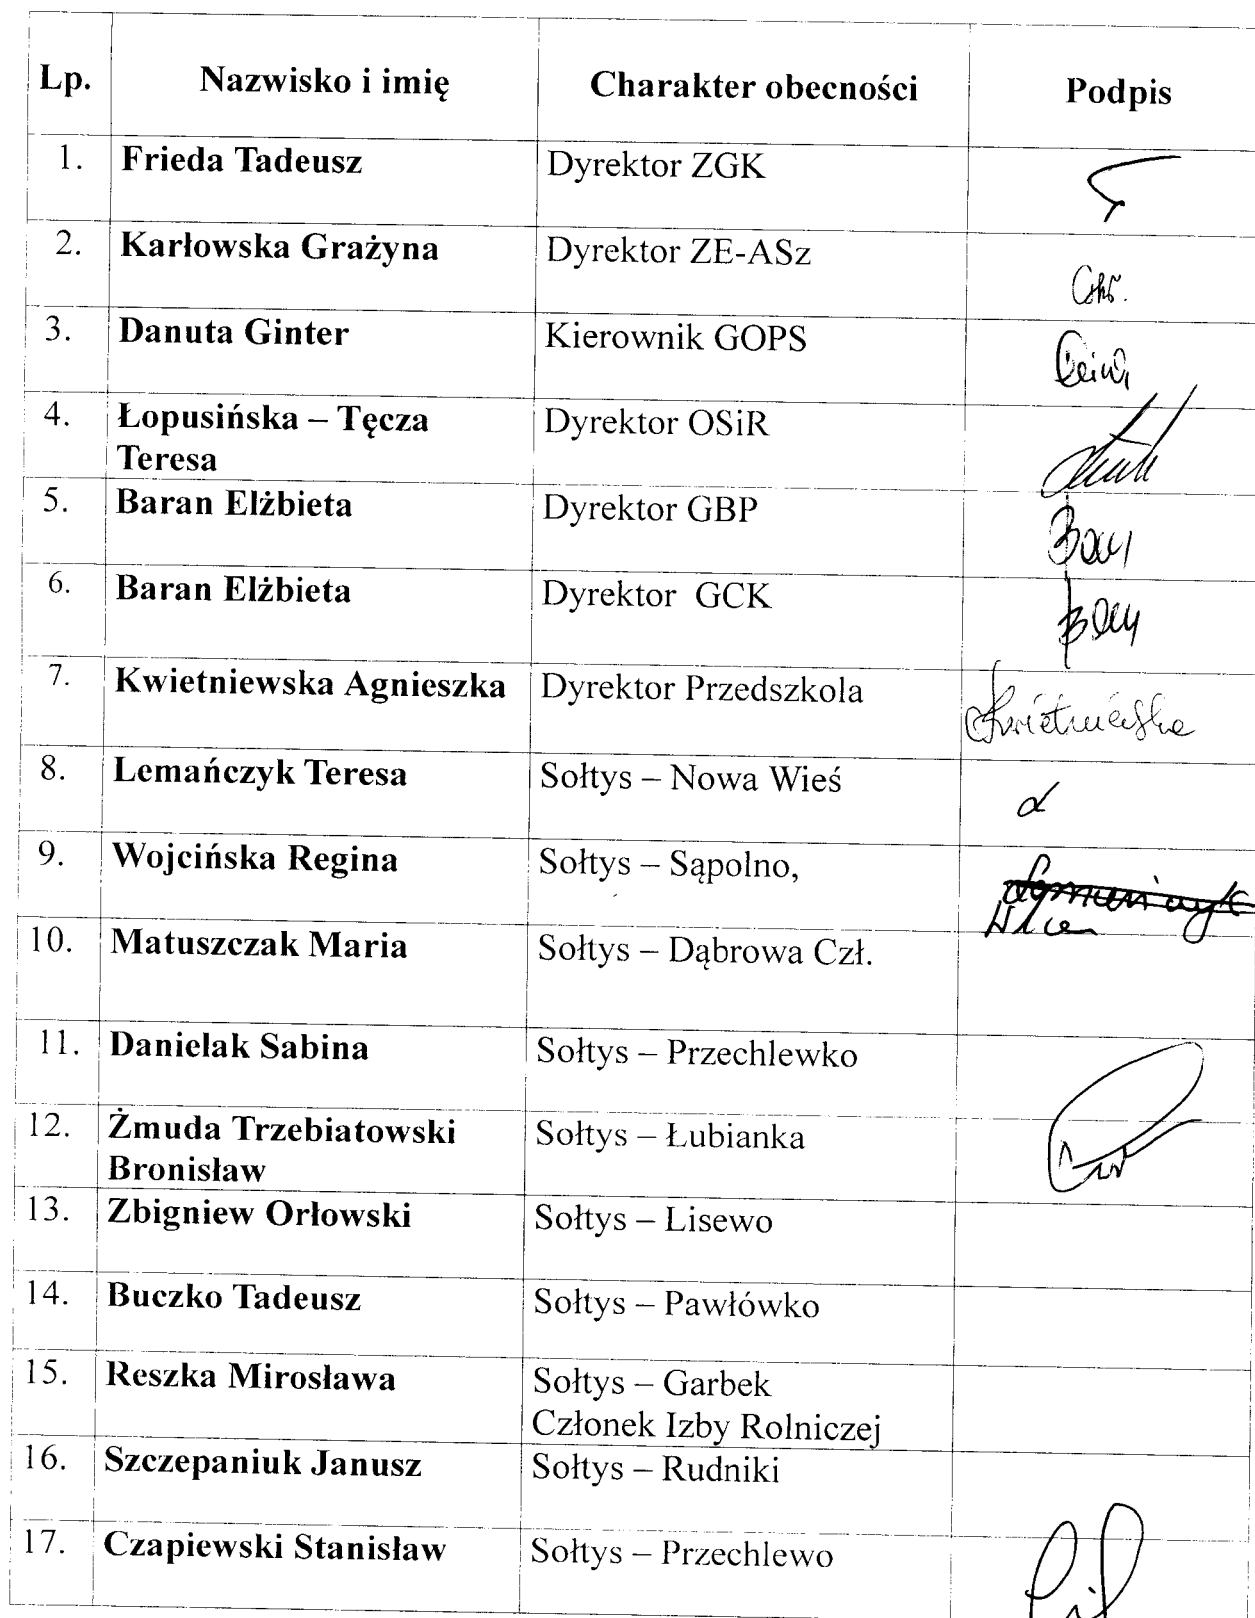 Lp. Nazwisko i imię Charakter obecności Podpis
1. Frieda Tadeusz Dyrektor ZGK
2. Karłowska Grażyna Dyrektor ZE-ASz
3. Danuta Ginter Kierownik GOPS
4. Łopusińska – Tęcza Dyrektor OSiR
Teresa
5. Baran Elżbieta Dyrektor GBP
6. Baran Elżbieta Dyrektor GCK
7. Kwietniewska Agnieszka Dyrektor Przedszkola Kwietniewska
8. Lemańczyk Teresa Sołtys – Nowa Wieś
9. Wojcińska Regina Sołtys – Sąpolno,
10. Matuszczak Maria Sołtys – Dąbrowa Czł.
11. Danielak Sabina Sołtys – Przechlewko
12. Żmuda Trzebiatowski Sołtys – Łubianka
Bronisław
13. Zbigniew Orłowski Sołtys – Lisewo
14. Buczko Tadeusz Sołtys – Pawłówko
15. Reszka Mirosława Sołtys – Garbek
Członek Izby Rolniczej
16. Szczepaniuk Janusz Sołtys – Rudniki
17. Czapiewski Stanisław Sołtys – Przechlewo